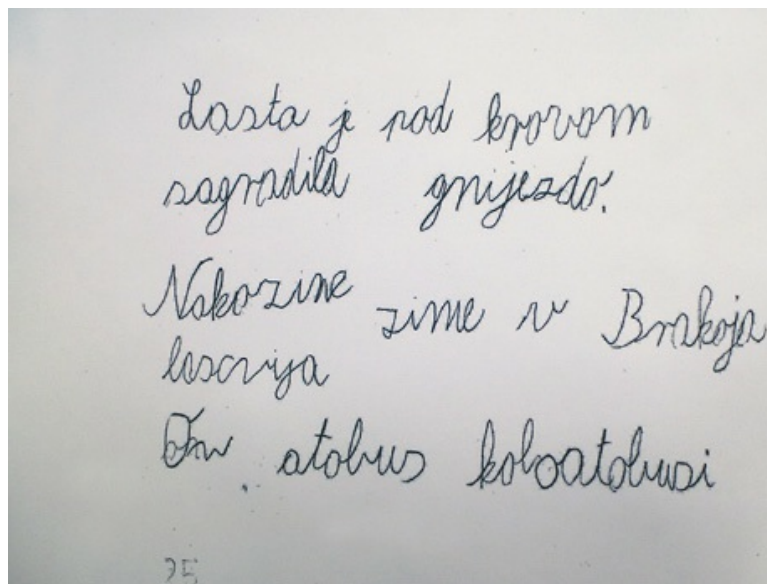 Lasta je pod krovom
sagradila gnijezdo.
Nakozine zime v Brakoja
loscvija
On atobus koboatobusi
35